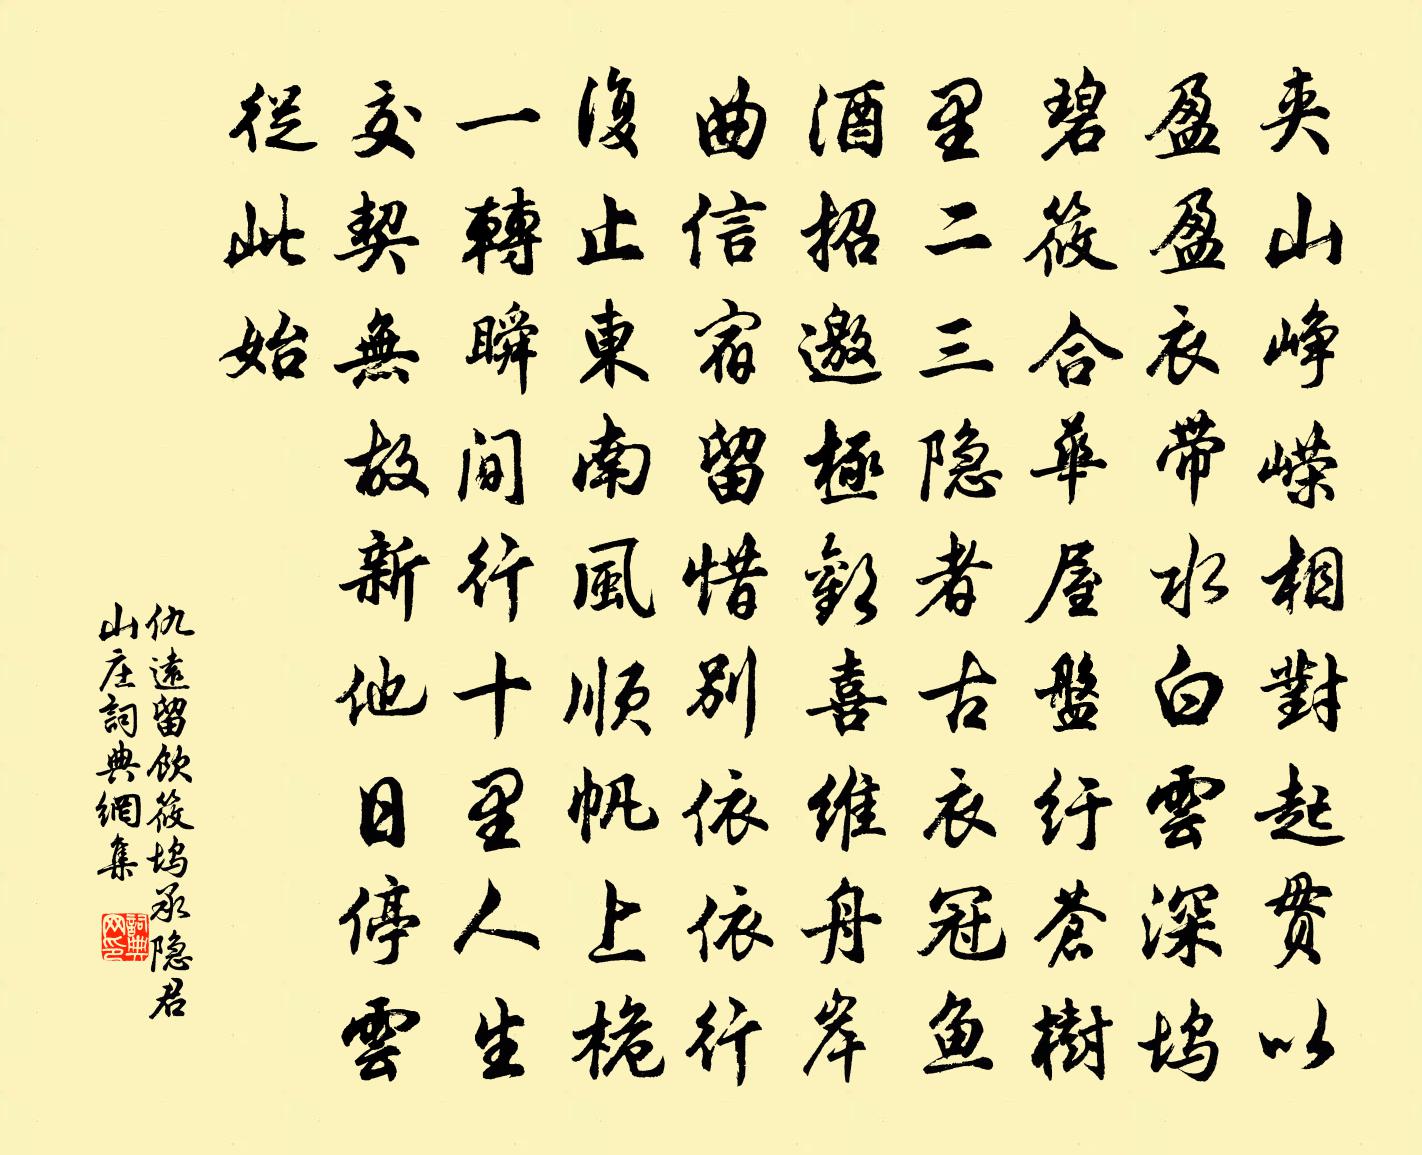 夹山峥嵘相對起贯以
盈盈衣带水白雲深坞
碧筱合華屋盤纡蒼樹
里二三隐者古衣冠鱼
酒招邀極歡喜維舟岸
曲信宿留惜别依依行
復止東南風顺帆上桅
一轉瞬间行十里人生
交契無故新他日停雲
從此始
仇遠留飲筱坞承隐君
山庄詞典網集